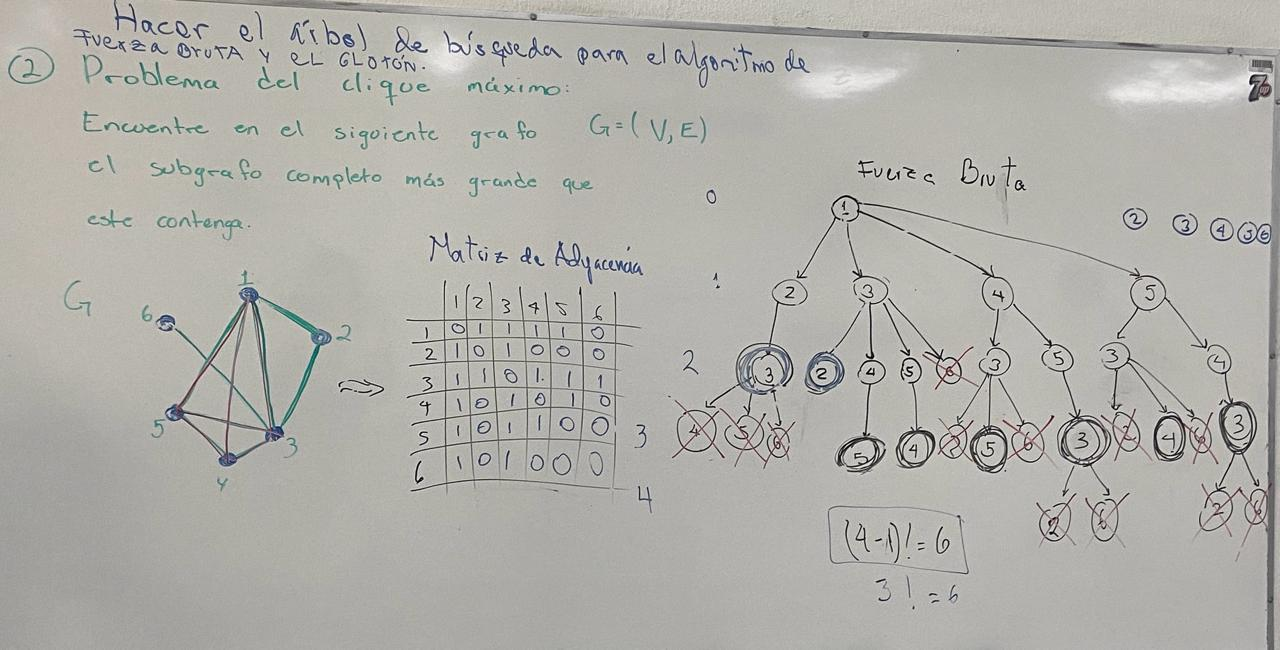 Hacer el árbol de búsqueda para el algoritmo de
FUERZA BRUTA Y EL GLOTÓN.
② Problema del clique máximo:
Encuentre en el siguiente grafo G=(V,E)
el subgrafo completo más grande que
este contenga.
G
1
6
2
5
3
4
Matriz de Adyacencia
1 2 3 4 5 6
1 0 1 1 1 1 0
2 1 0 1 0 0 0
3 1 1 0 1 1 1
4 1 0 1 0 1 0
5 1 0 1 1 0 0
6 1 0 1 0 0 0
Fuerza Bruta
② ③ ④ ⑤ ⑥
0 1
1 2 3 4 5
2 3 2 4 5 6 3 5 3 4
3 4 5 6 5 4 2 5 6 3 2 4 6 3
4 2 6 2 6
(4-1)! = 6
3! = 6
7up